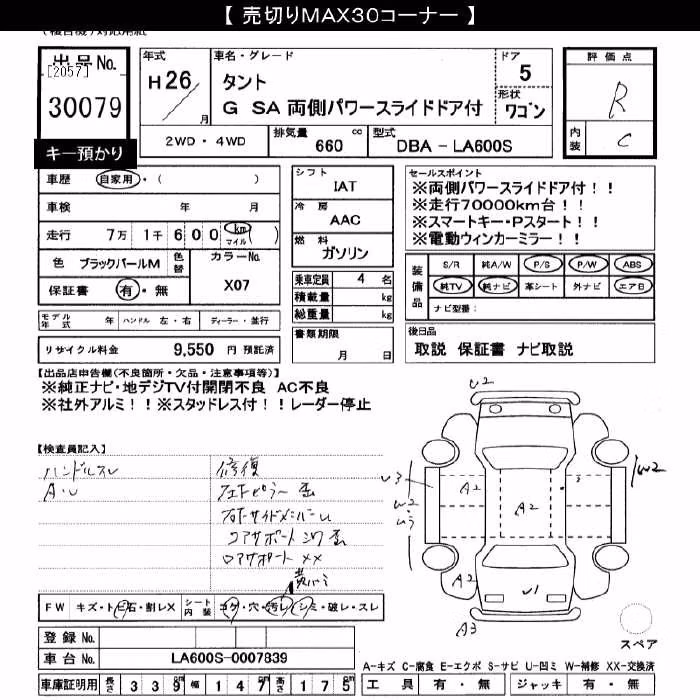 【 売切りMAX30コーナー 】
出品No.
[2057]
30079
キー預かり
年式
H26
月
車名・グレード
タント
G SA 両側パワースライドドア付
ドア
5
形状
ワゴン
評価点
R
内装
C
2WD・4WD
排気量 660 cc
型式 DBA - LA600S
車歴 自家用・( )
車検 年 月
走行 7万 1千 600 (km マイル)
色 ブラックパールM 色替
カラーNo. X07
保証書 有・無
モデル年式 年 ハンドル 左・右 ディーラー・並行
リサイクル料金 9,550 円 預託済
シフト
IAT
冷房
AAC
燃料
ガソリン
乗車定員 4 名
積載量 kg
総重量 kg
書類期限
月 日
セールスポイント
※両側パワースライドドア付！！
※走行70000km台！！
※スマートキー・Pスタート！！
※電動ウィンカーミラー！！
装備品
S/R 純A/W P/S P/W ABS
純TV 純ナビ 革シート 外ナビ エアB
ナビ型番:
後日品
取説 保証書 ナビ取説
【出品店申告欄(不良箇所・欠品・注意事項等)】
※純正ナビ・地デジTV付開閉不良 AC不良
※社外アルミ！！※スタッドレス付！！レーダー停止
【検査員記入】
ハンドルスレ
A・U
修復
コアサポート
ロアサポート XX
U2
U3
W2
U3
A2
A2
W2
A2
A2
U1
A3
FW キズ・トビ石・割レX
シート内装 コゲ・穴・汚レ・シミ・破レ・スレ
スペア
登録 No.
車台 No. LA600S-0007839
A-キズ C-腐食 E-エクボ S-サビ U-凹ミ W-補修 XX-交換済
車庫証明用 長さ 339 幅 147 高さ 175
工具 有・無 ジャッキ 有・無